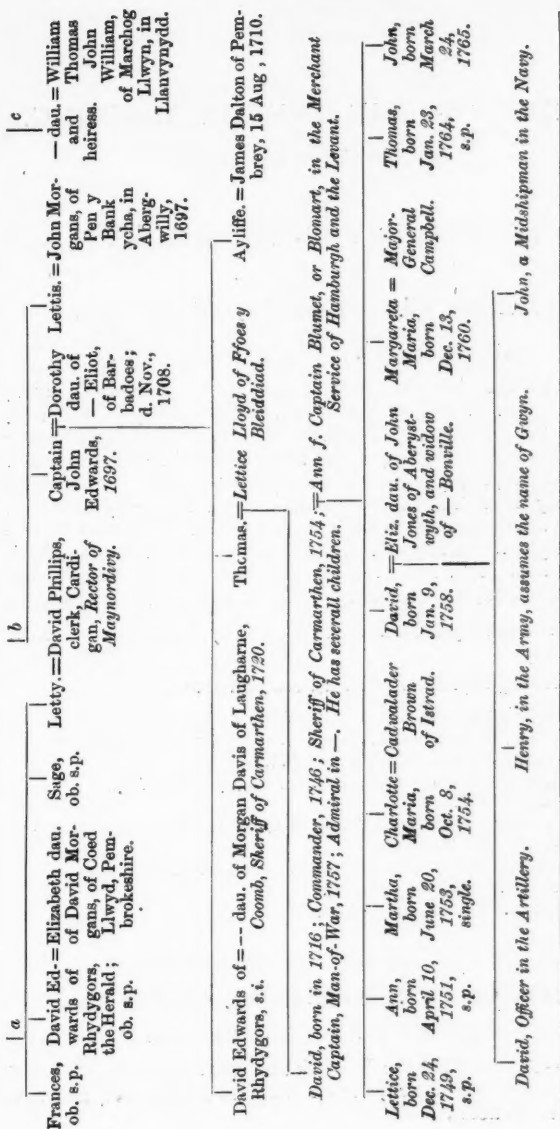 a
b
c
Frances,
ob. s.p.
David Ed-
wards of
Rhydygors,
the Herald;
ob. s.p.
=Elizabeth dau.
of David Mor-
gans, of Coed
Llwyd, Pem-
brokeshire.
Sage,
ob. s.p.
Letty.=David Phillips,
clerk, Cardi-
gan, Rector of
Maynordivy.
Captain
John
Edwards,
1697.
=Dorothy
dau. of
— Eliot,
of Bar-
badoes;
d. Nov.,
1708.
Lettis.=John Mor-
gans, of
Pen y
Bank
ycha, in
Aberg-
willy,
1697.
— dau.
and
heiress.
=William
Thomas
John
William,
of Marchog
Llwyn, in
Llanvynydd.
David Edwards of
Rhydygors, s.i.
=-- dau. of Morgan Davis of Laugharne,
Coomb, Sheriff of Carmarthen, 1720.
Thomas.=Lettice Lloyd of Ffoes y
Bleiddiad.
Ayliffe.=James Dalton of Pem-
brey, 15 Aug, 1710.
David, born in 1716; Commander, 1746; Sheriff of Carmarthen, 1754;
Captain, Man-of-War, 1757; Admiral in —. He has severall children.
=Ann f. Captain Blumet, or Blomart, in the Merchant
Service of Hamburgh and the Levant.
Lettice,
born
Dec. 24,
1749,
s.p.
Ann,
born
April 10,
1751,
s.p.
Martha,
born
June 20,
1753,
single.
Charlotte
Maria,
born
Oct. 8,
1754.
=Cadwalader
Brown
of Istrad.
David,
born
Jan. 9,
1758.
=Eliz. dau. of John
Jones of Aberyst-
wyth, and widow
of — Bonville.
Margareta
Maria,
born
Dec. 13,
1760.
= Major-
General
Campbell.
Thomas,
born
Jan. 23,
1764,
s.p.
John,
born
March
24,
1765.
David, Officer in the Artillery.
Henry, in the Army, assumes the name of Gwyn.
John, a Midshipman in the Navy.